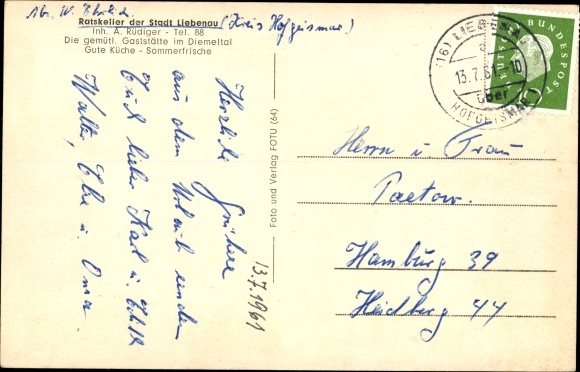 Abs. W. Ehrlich
Ratskeller der Stadt Liebenau (Kreis Hofgeismar)
Inh. A. Rüdiger - Tel. 88
Die gemütl. Gaststätte im Diemeltal
Gute Küche - Sommerfrische
Herzliche Grüsse
aus dem Urlaub senden
Euch lieber Karl u.
Walter, Else u. Oma.
13.7.1961
Foto und Verlag FOTU (64)
(16) LIEBENAU
13.7.61-10
über
HOFGEISMAR
DEUTSCHE BUNDESPOST
10
Herrn u. Frau
Paetow.
Hamburg 39
Heidberg 44